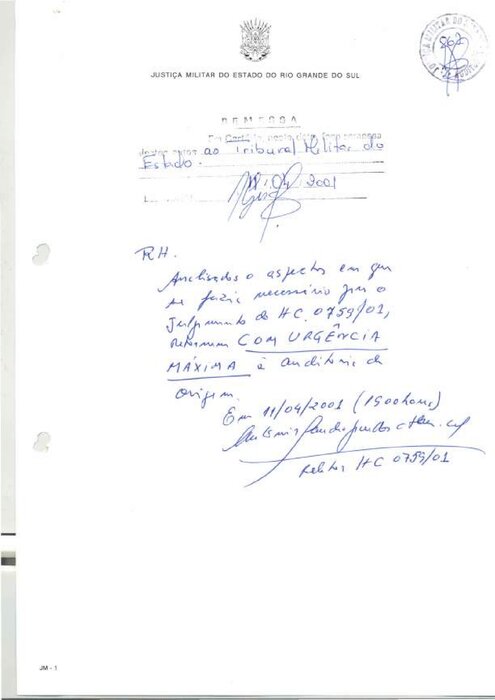 JUSTIÇA MILITAR DO ESTADO DO RIO GRANDE DO SUL
867
REMESSA
Em Cartório, nesta data, faço remessa
destes autos ao Tribunal Militar do
Estado.
11/04/2001
RH.
Analisados o aspectos em que
se fazia necessário para o
julgamento do HC 0759/01,
retornem COM URGÊNCIA
MÁXIMA à auditoria de
origem.
Em 11/04/2001 (1900horas)
Relator HC 0759/01
JM - 1